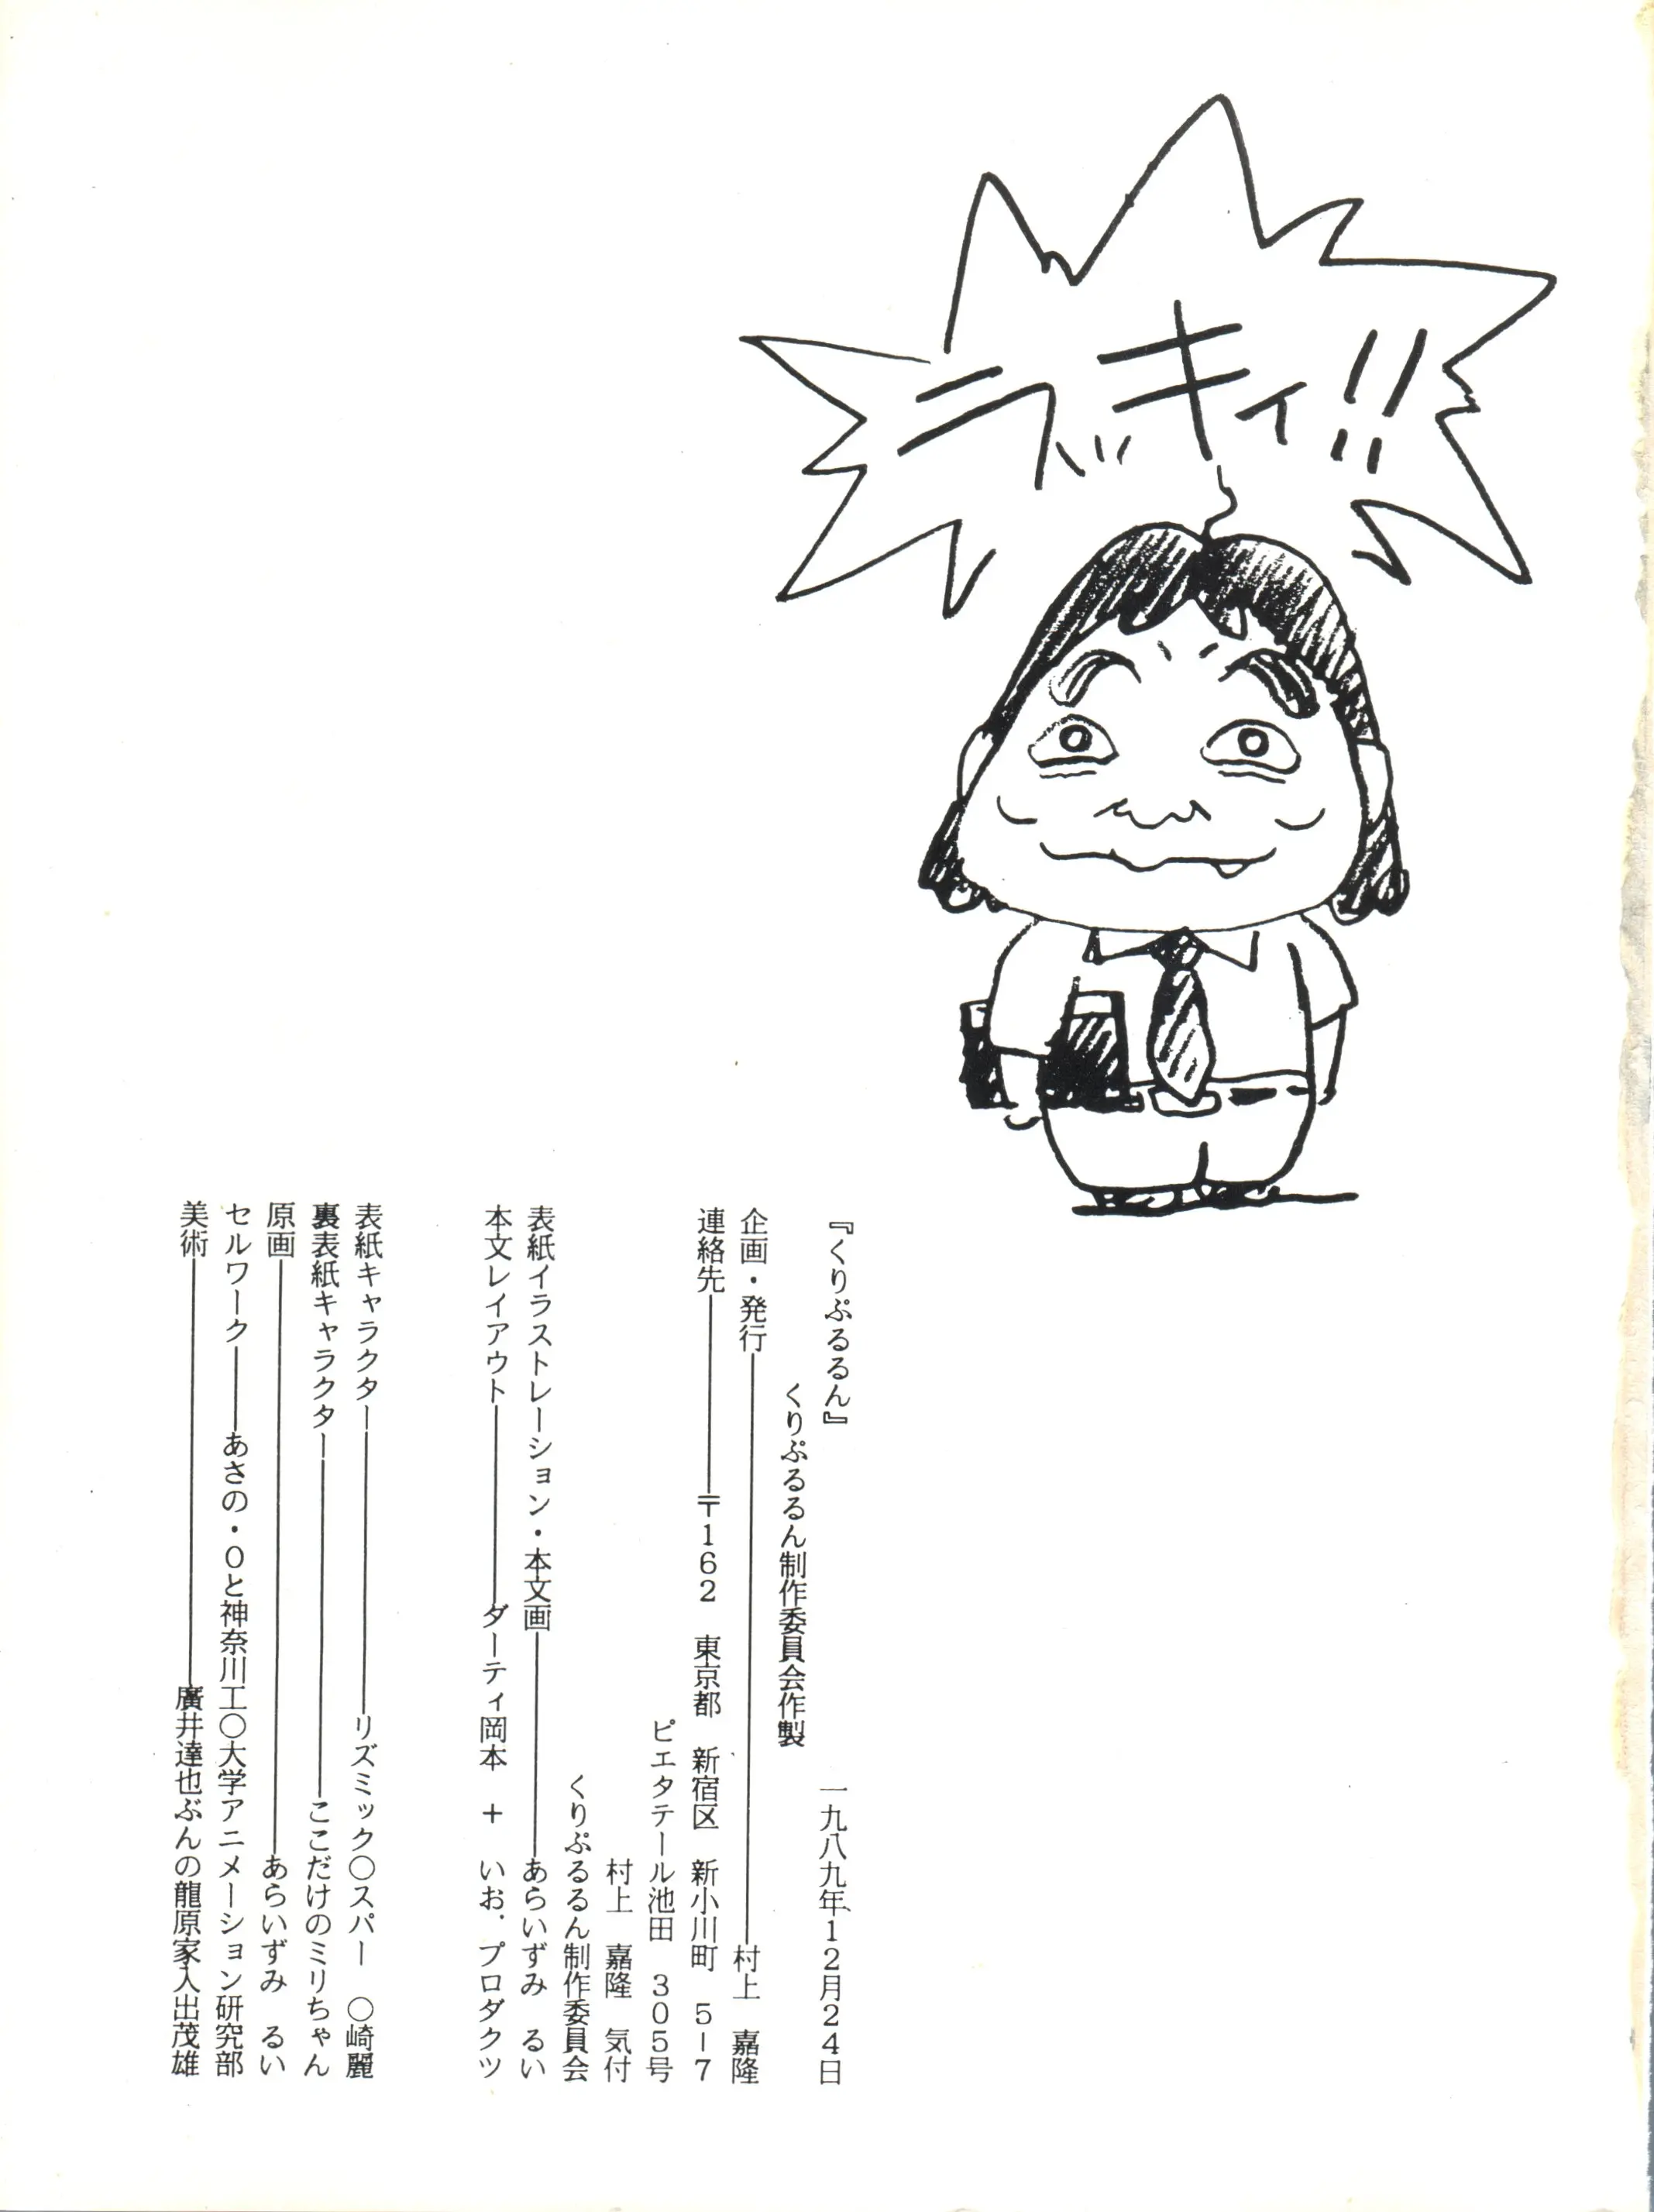 ラッキィ!!
『くりぷるるん』 一九八九年、12月24日
くりぷるるん制作委員会作製
企画・発行――村上 嘉隆
連絡先――〒162 東京都 新宿区 新小川町 5-7
ピエタテール池田 305号
村上 嘉隆 気付
くりぷるるん制作委員会
表紙イラストレーション・本文画――あらいずみ るい
本文レイアウト――ダーティ岡本 + いお.プロダクツ
表紙キャラクター――リズミック○スパー ○崎麗
裏表紙キャラクター――ここだけのミリちゃん
原画――あらいずみ るい
セルワーク――あさの・0と神奈川工○大学アニメーション研究部
美術――廣井達也ぶんの龍原家人出茂雄